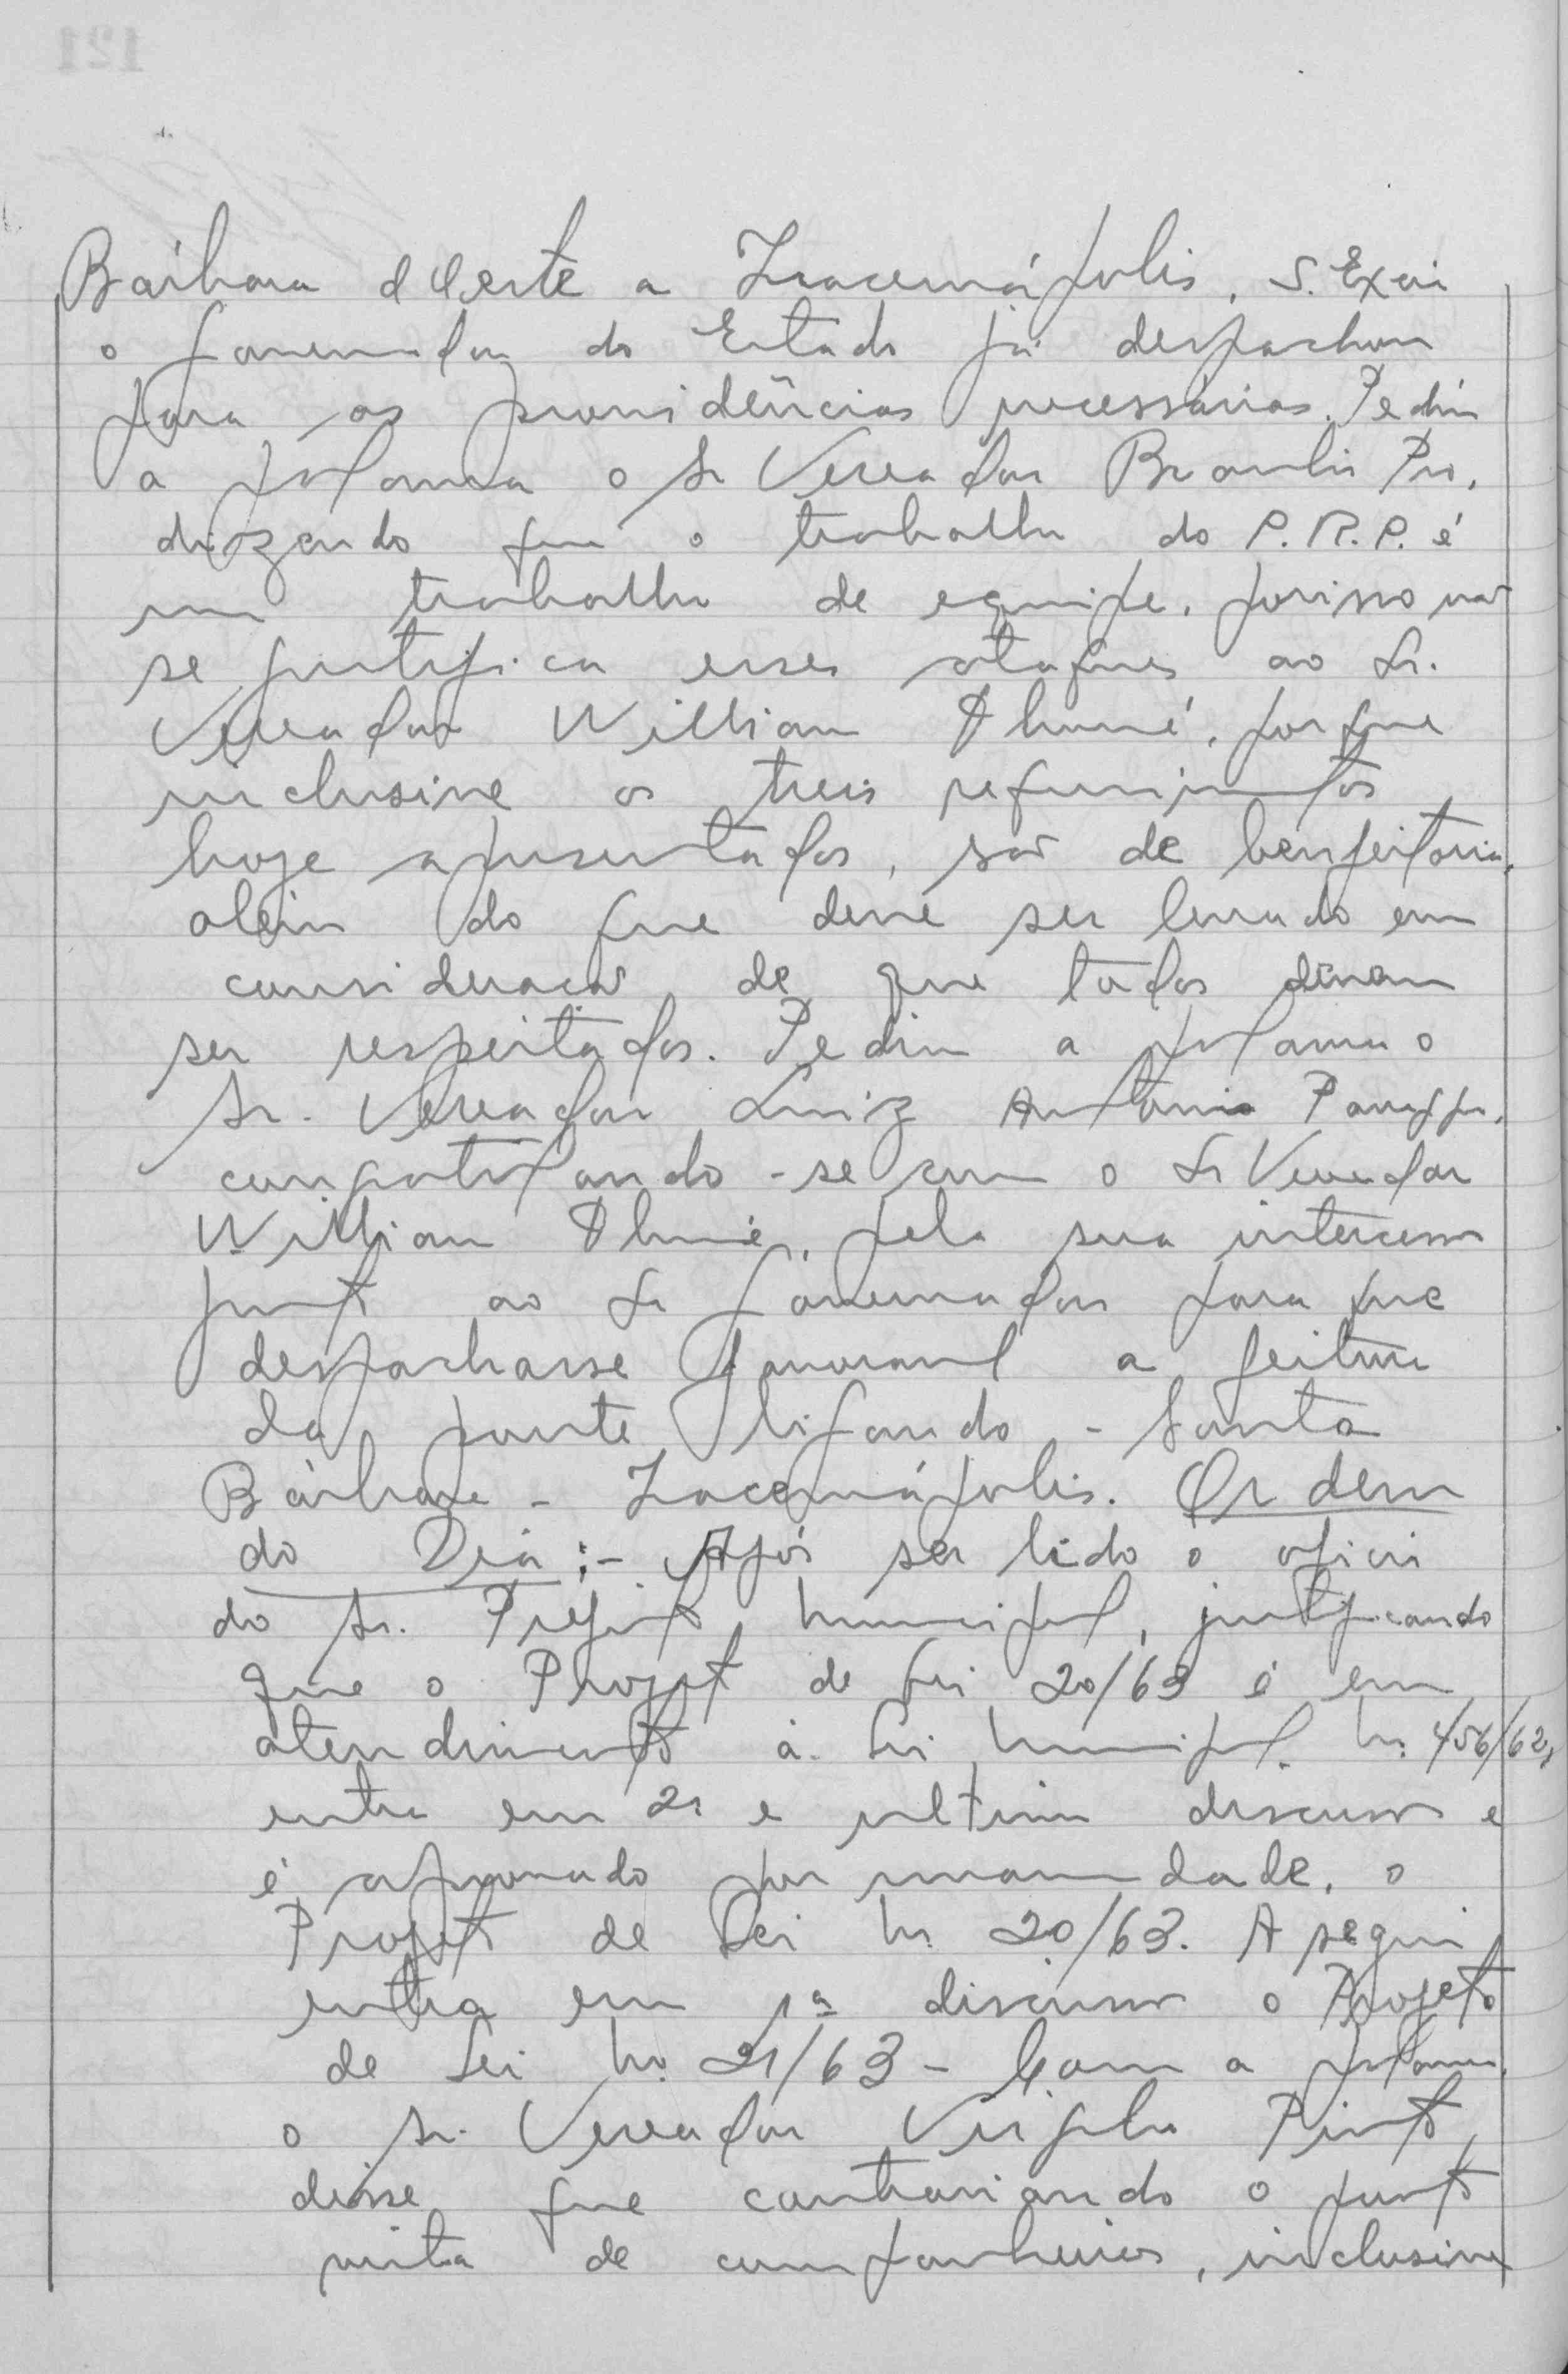 Bárbara d Oeste a Iracemápolis, S. Excia
o Governador do Estado já despachou
para as providências necessárias. Pediu
a palavra o Sr Vereador Braulio Pio,
dizendo que o trabalho do P.R.P. é
um trabalho de equipe, porisso não
se justifica esses ataques ao Sr.
Vereador Willian, porque
inclusive os treis requerimentos
hoje apresentados, são de benfeitoria,
alem do que deve ser levado em
consideração de que todos devem
ser respeitados. Pediu a palavra o
Sr. Vereador Luiz Antonio
congratulando-se com o Sr Vereador
Willian, pela sua intercessão
junto ao Sr Governador para que
despachasse favoravel a feitura
da ponte ligando - Santa
Bárbara - Iracemápolis. Ordem
do Dia:- Após ser lido o oficio
do Sr. Prefeito Municipal, justificando
que o Projeto de Lei 20/63 é em
atendimento à Lei Municipal nº 456/62,
entra em 2ª e ultima discussão e
é aprovado por unanimidade, o
Projeto de Lei nº 20/63. A seguir
entra em 1ª discussão o Projeto
de Lei nº 21/63 - Com a palavra
o Sr. Vereador Virgilio Pinto,
disse que contrariando o ponto
vista de companheiros, inclusive